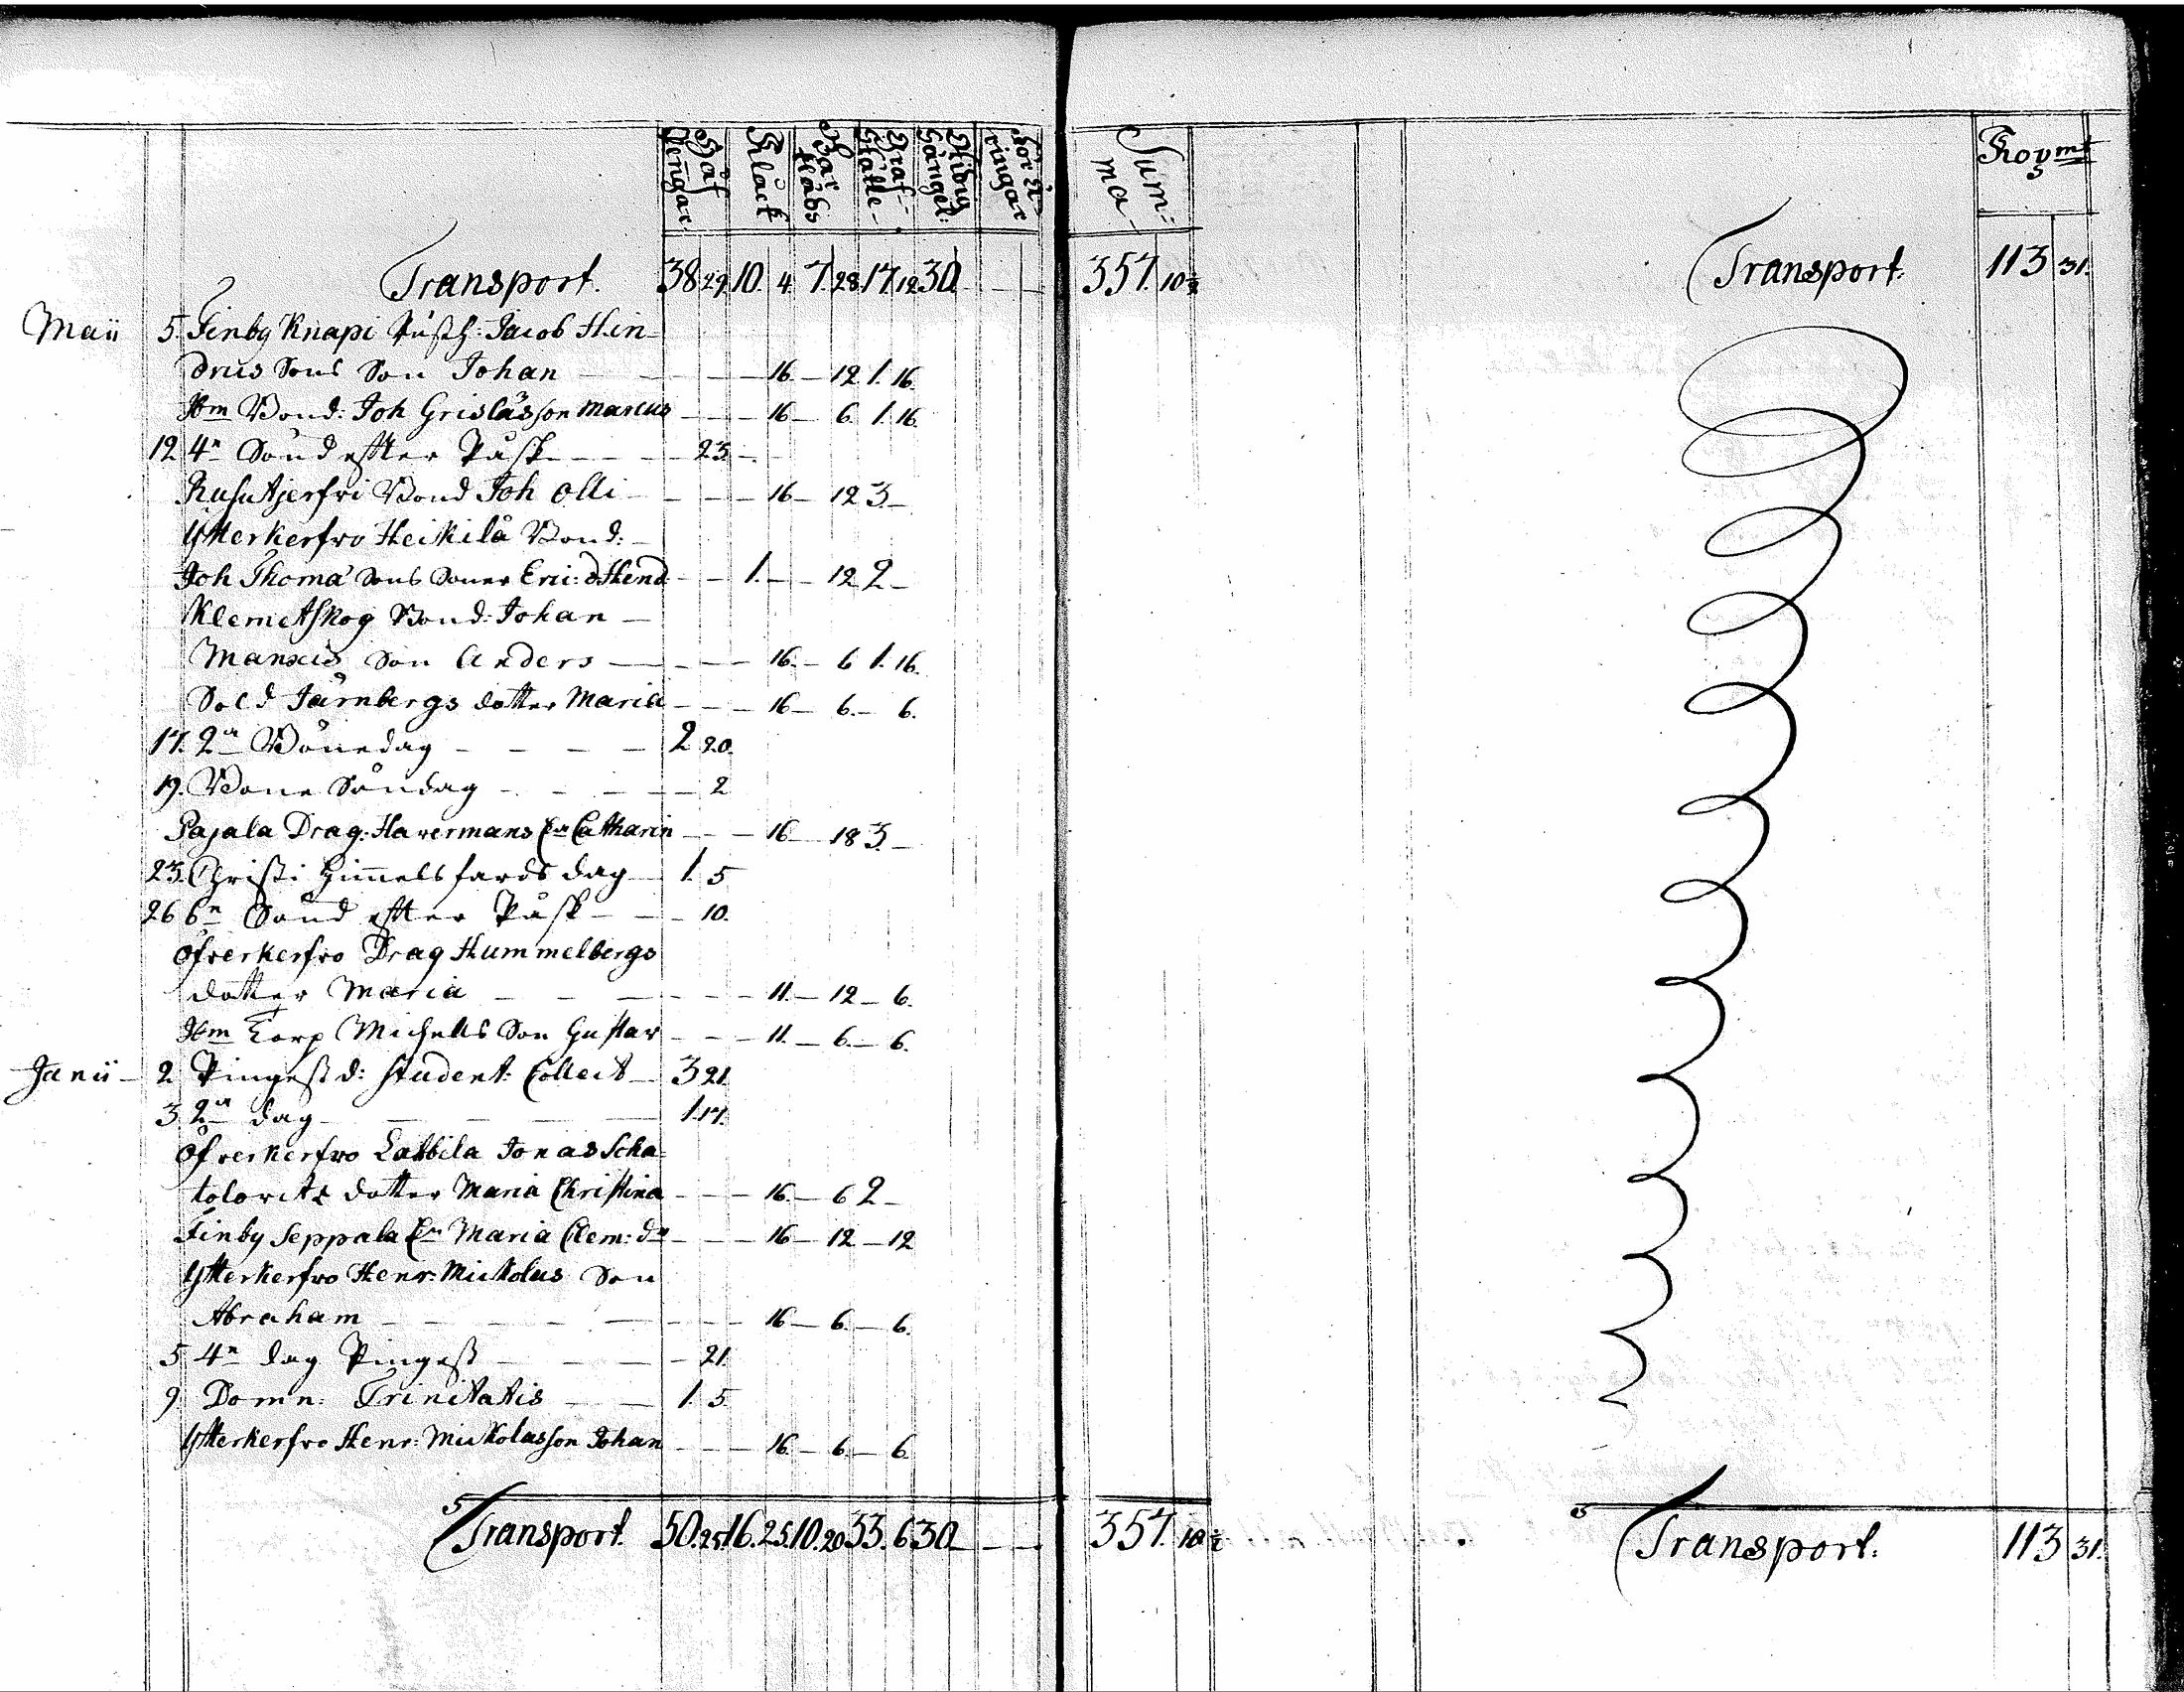 Håf Pengar
Klåck
Bår Kläds
Graf Ställe
Hidig Gångel:
För ä ringar
Sum: ma
Kopmt
Transport. 38 29. 10. 4. 7. 28. 17. 12. 30. — —
357. 10½
Transport. 113 31.
Maii 5. Finby Knapi Jacob Hin-
drics Sons Son Johan — — 16. — 12 1. 16.
Ibm Bond: Joh Grislåsson Marcus — — 16 — 6. 1. 16.
12 4n Sönd efter Påsk — — 23. —
Rusutjerfvi Bond Joh Olli — — 16 — 12 3. —
Ytterkerfvo Heikilä Bond: —
Joh Thomæ Sons Söner Eric: o Hend — — 1. — — 12 2 —
Klemetskog Bond: Johan —
Marxus Son Anders — — 16. — 6 1. 16.
Sold Järnbergs dotter Maria — — 16 — 6. — 6.
17. 2a Bönedag — — — — 2 20.
19. Böne Söndag — — — — 2
Pajala Drag: Havermans Ea Catharin — — 16 — 18 3. —
23. Christi Himmelsfards dag — 1. 5
26 6n Sönd efter Påsk — — 10.
Öfverkerfvo Drag Hummelbergs
dotter Maria — — — — 11. — 12 — 6.
Ibm Corp Michels Son Gustav — — 11. — 6. — 6.
Junii — 2 Pingesd: Student: Collect — 3 21.
3 2a dag — — — — 1. 17.
Öfverkerfvo Labbila Jonas Scha-
tolovits dotter Maria Christina — — 16. — 6 2 —
Finby Seppala En Maria Clem: dr — — 16 — 12 — 12
Ytterkerfvo Henr: Mickolus Son
Abraham — — — — 16 — 6. — 6.
5 4n dag Pingest — — — 21.
9 Domn: Trinitatis — — 1. 5
Ytterkerfvo Henr: Mickolasson Johan — — 16. — 6. — 6.
Transport. 50. 25. 16. 25. 10. 20 33. 6 30. — —
357. 10½
Transport. 113 31.